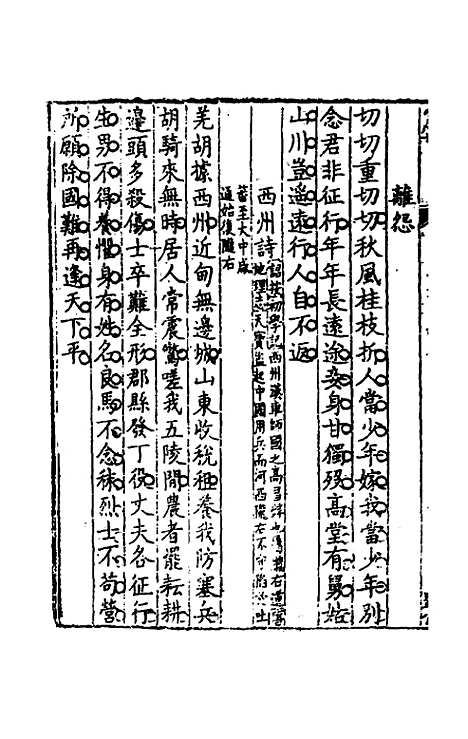 離怨
切切重切切秋風桂枝折人當少年嫁我當少年別
念君非征行年年長遠途妾身甘獨歿高堂有舅姑
山川豈遥遠行人自不返
西州詩
蕃至大中咸
通始復隴右
羌胡據西州近甸無邊城山東收稅租養我防塞兵
胡騎來無時居人常震驚嗟我五陵間農者罷耘耕
邉頭多殺傷士卒難全形郡縣發丁役丈夫各征行
生男不得養懼身有姓名良馬不念秣烈士不苟營
所願除國難再逢天下平